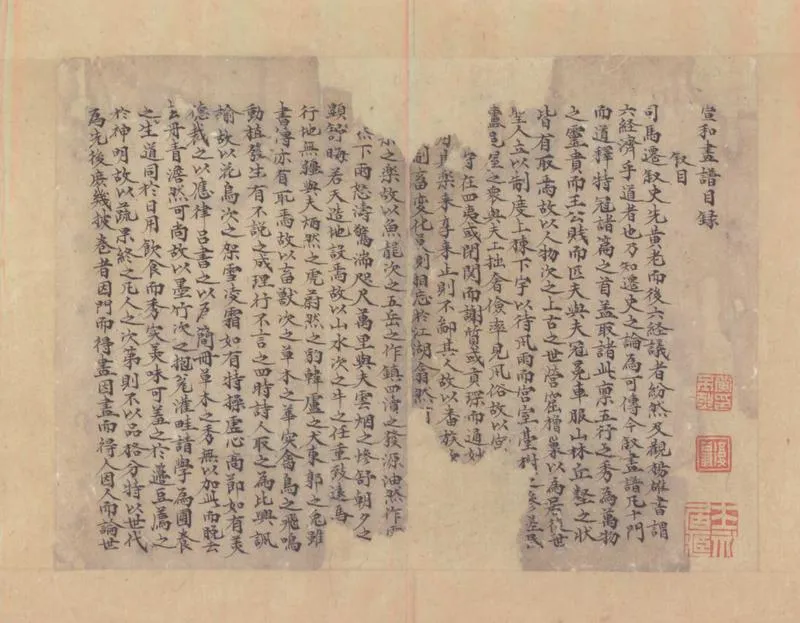 宣和畫譜目録
叙目
司馬遷叙史先黃老而後六經議者紛然及觀揚雄書謂
六經濟乎道者也乃知遷史之論為可傳今叙畫譜凡十門
而道釋特冠諸篇之首蓋取諸此禀五行之秀為萬物
之靈貴而王公賤而匹夫與夫冠冕車服山林丘壑之狀
皆有取焉故以人物次之上古之世營窟橧巢以為居後世
聖人立以制度上棟下宇以待風雨而宮室臺榭之參差民
廬邑屋之衆與夫工拙奢儉率見風俗故以宮
守在四夷或閉關而謝質或貢琛而通好
樂来享来止則不鄙其人故以番族
變化則相忘於江湖翕然
水之樂故以魚龍次之五岳之作鎮四瀆之發源油然作雲
然下雨怒濤驚湍咫尺萬里與夫雲烟之慘舒朝夕之
顯舒晦若天造地設焉故以山水次之牛之任重致遠馬
行地無疆與夫炳然之虎蔚然之豹韓盧之犬東郭之兔雖
書傳亦有取焉故以畜獸次之草木之華實禽鳥之飛鳴
動植發生有不說之成理行不言之四時詩人取之為比興諷
喻故以花鳥次之架雪凌霜如有特操虛心高節如有美
德裁之以應律呂書之以為簡冊草木之秀無以加此而脫去
丹青澹然可尚故以墨竹次之抱甕灌畦請學為圃養
之生道同於日用飲食而秀實美味可羞之於籩豆薦之
於神明故以蔬果終之凡人之次第則不以品格分特以世代
為先後庶幾披卷者因門而得畫因畫而得人因人而論世